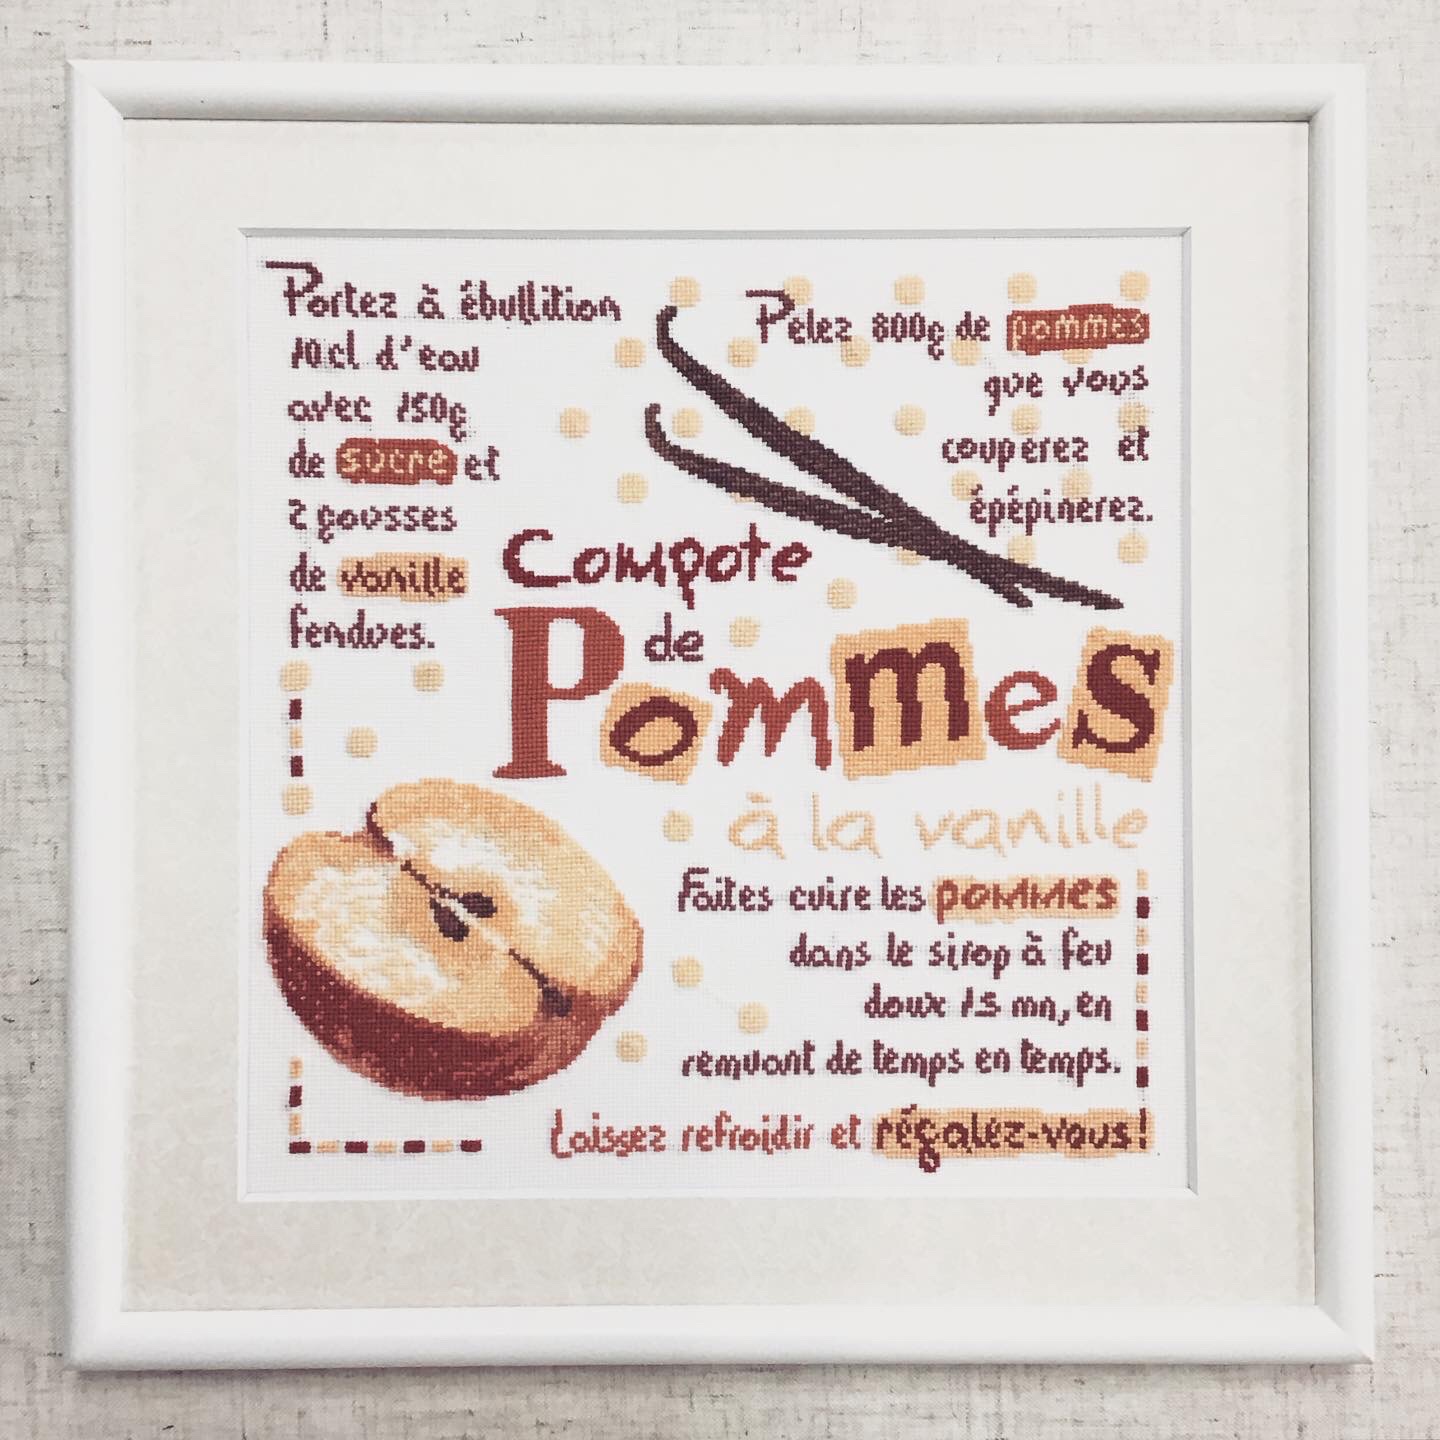 Portez à ébullition
10cl d'eau
avec 150g
de sucre et
2 gousses
de vanille
fendues.
Pelez 800g de pommes
que vous
couperez et
épépinerez.
Compote
de
Pommes
à la vanille
Faites cuire les pommes
dans le sirop à feu
doux 15 mn, en
remuant de temps en temps.
Laissez refroidir et régalez-vous!